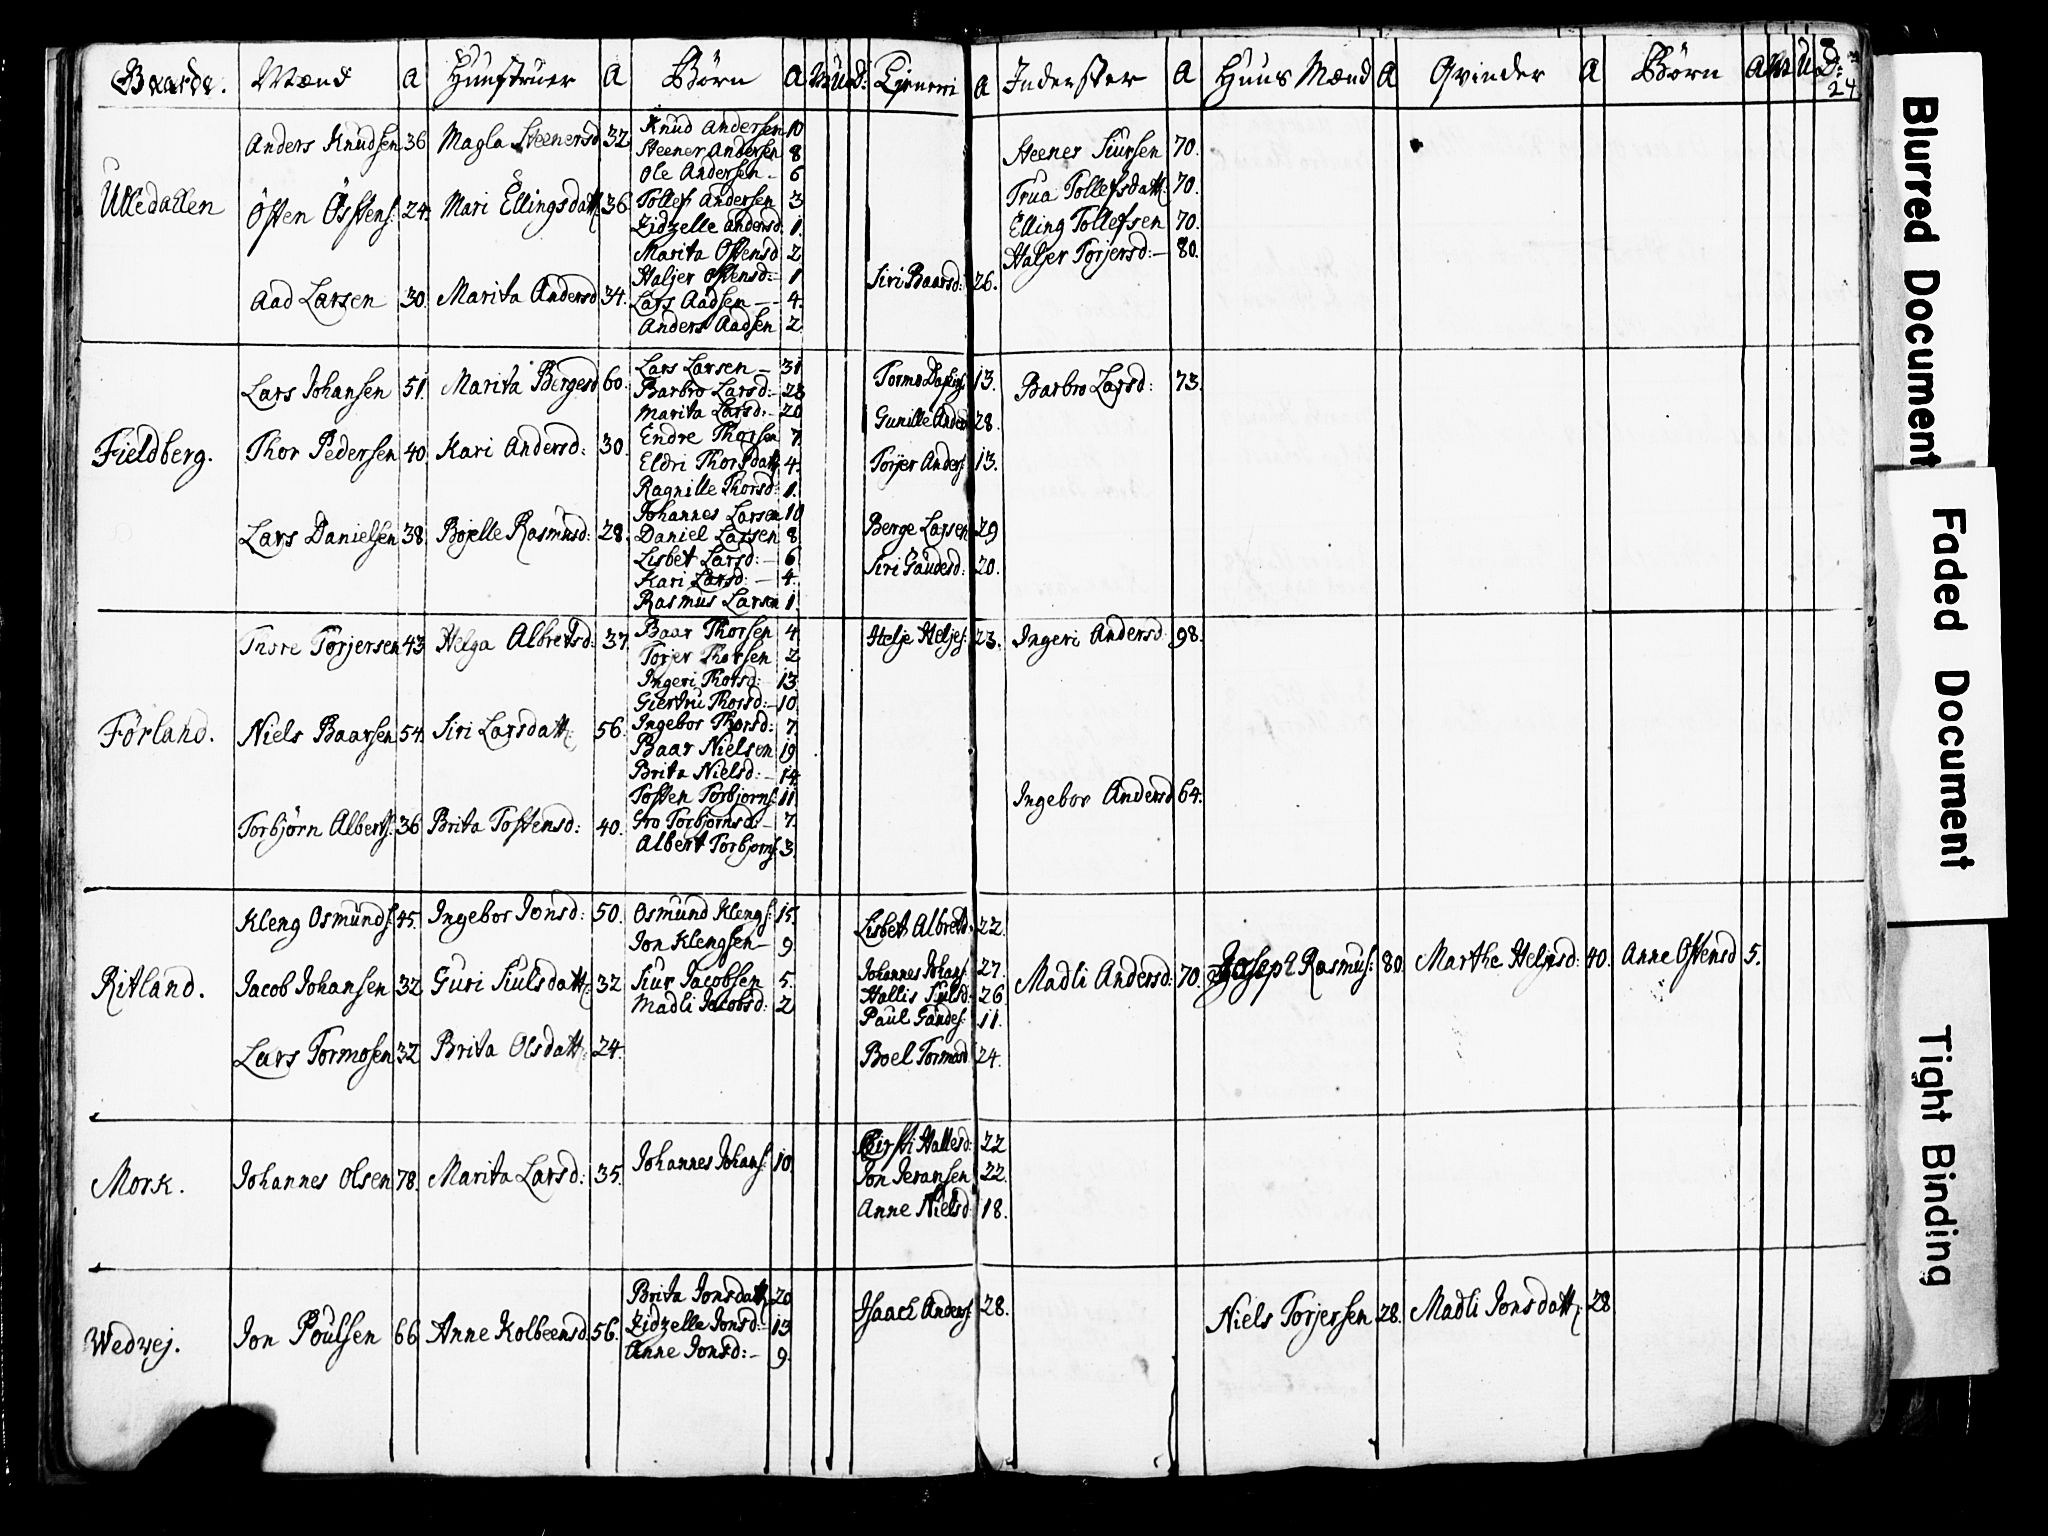 Gaarde. Mænd A Hunstruer A Børn A M U D: Tjeneri A Inderster A Huus Mænd A Qvinder A Børn A M U D: 24
Ulledallen
Anders Knudsen 36 Magla Steenersd 32 Knud Andersen 10
Steener Andersen 8 Steener Siursen 70.
Ole Andersen - 6
Østen Østens: 24. Mari Ellingsdatt: 36 Tollef Andersen 3 Trua Tollefsdatt: 70.
Zidzelle Andersd. 1. Elling Tollefsen 70.
Marita Ostensd 2 Haljer Torjersd: - 80.
Haljer Ostensd: - 1 Siri Baarsd: 26.
Aad Larsen 30. Marita Andersd 34. Lars Aadsen - 4.
Anders Aadsen 2
Fieldberg.
Lars Johansen 51. Marita Bergesd 60. Lars Larsen - 31 13. Barbro Larsd: 73.
Barbro Larsd: - 23
Marita Larsd: - 20 Gunille Anders 28.
Thor Pedersen 40. Kari Andersd: 30. Endre Thorsen 7.
Eldri Thorsdatt 4. Torjer Anders: 13.
Ragnille Thorsd: 1.
Lars Danielsen 38. Bojelle Rasmusd: 28. Johannes Larsen 10
Daniel Larsen 8 Berge Larsen 29
Lisbet Larsd: - 6
Kari Larsd: - 4. Siri Gaudesd: 20.
Rasmus Larsen 1.
Førland.
Thore Torjersen 43 Helga Albretsd: 37. Baar Thorsen 4. Helje Heljes: 23. Ingeri Andersd: 98.
Torjer Thorsen 2
Ingeri Thorsd: 13
Giertru Thorsd: - 10
Niels Baarsen 54. Siri Larsdatt: 56. Ingebor Thorsd: 7.
Baar Nielsen 19
Brita Nielsd: - 14
Tosten Torbjorns: 11 Ingebor Andersd 64.
Torbjørn Alberts: 36 Brita Tostensd: 40. Gro Torbjornsd: - 7.
Albert Torbjorns: 3.
Ritland.
Kleng Osmunds: 45. Ingebor Jonsd: 50. Osmund Klengs: 15. Lisbet Albretd: 22.
Jon Klengsen - 9.
Jacob Johansen 32 Guri Siulsdatt: 32 Siur Jacobsen 5. Johannes Johans: 27. Madli Andersd: 70. Joseph Rasmus: 80. Marthe Heljesd: 40. Anne Ostensd 5.
Madli Jacobsd: 2 Hallis Siulsd: 26
Paul Gaudes: 11.
Lars Tormosen 32 Brita Olsdatt: 24. Boel Tormosd 24.
Mork.
Kirsti Hallesd: 22
Johannes Olsen 78. Marita Larsd: 35. Johannes Johans: 10. Jon Jeransen 22.
Anne Nielsd: 18.
Wedvej.
Jon Poulsen 66 Anne Kolbeensd. 56. Brita Jonsdatt: 20 Isaach Anders: 28. Niels Torjersen 28. Madli Jonsdatt: 28
Zidzelle Jonsd: - 13
Anne Jonsd: - 9.
Blurred Document
Faded Document
Tight Binding